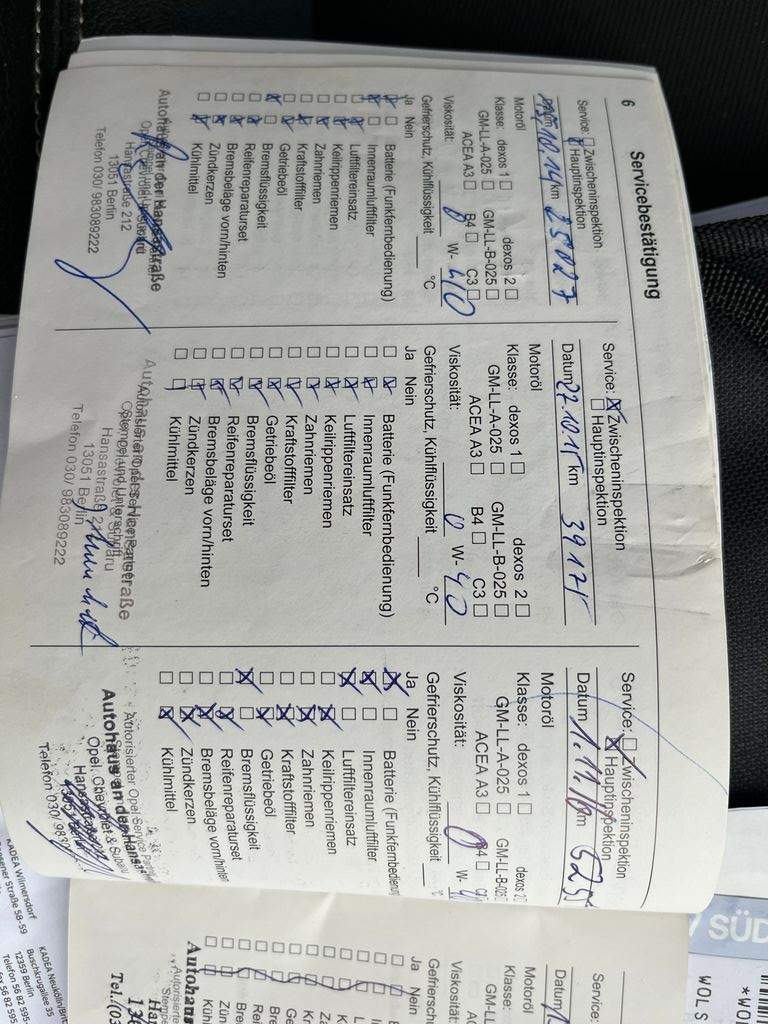 6
Servicebestätigung
Service: Zwischeninspektion
Hauptinspektion
10.14 km 25027
Motoröl
Klasse: dexos 1 dexos 2
GM-LL-A-025 GM-LL-B-025
ACEA A3 B4 C3
Viskosität: 0 W- 40
Gefrierschutz, Kühlflüssigkeit °C
Ja Nein
Batterie (Funkfernbedienung)
Innenraumluftfilter
Luftfiltereinsatz
Keilrippenriemen
Zahnriemen
Kraftstofffilter
Getriebeöl
Bremsflüssigkeit
Reifenreparaturset
Bremsbeläge vorn/hinten
Zündkerzen
Kühlmittel
Autohaus an der Hansastraße
Hansastraße 212
13051 Berlin
Telefon 030/ 983089222
Service: Zwischeninspektion
Hauptinspektion
Datum 27.10.15 km 39171
Motoröl
Klasse: dexos 1 dexos 2
GM-LL-A-025 GM-LL-B-025
ACEA A3 B4 C3
Viskosität: 0 W- 40
Gefrierschutz, Kühlflüssigkeit °C
Ja Nein
Batterie (Funkfernbedienung)
Innenraumluftfilter
Luftfiltereinsatz
Keilrippenriemen
Zahnriemen
Kraftstofffilter
Getriebeöl
Bremsflüssigkeit
Reifenreparaturset
Bremsbeläge vorn/hinten
Zündkerzen
Kühlmittel
Autohaus an der Hansastraße
Stempel und Unterschrift
Hansastraße
13051 Berlin
Telefon 030/ 983089222
Service: Zwischeninspektion
Hauptinspektion
Datum 1.11. km 525
Motoröl
Klasse: dexos 1 dexos 2
GM-LL-A-025 GM-LL-B-025
ACEA A3 B4
Viskosität: 0 W- 4
Gefrierschutz, Kühlflüssigkeit
Ja Nein
Batterie (Funkfernbedienung
Innenraumluftfilter
Luftfiltereinsatz
Keilrippenriemen
Zahnriemen
Kraftstofffilter
Getriebeöl
Bremsflüssigkeit
Reifenreparaturset
Bremsbeläge vorn/hinten
Zündkerzen
Kühlmittel
Autorisierter Opel Service Partner
Autohaus an der Hansa
Opel, Chevrolet & Subaru
Telefon 030/ 983
Service:
Datum
Motoröl
Klasse:
GM-LL
Viskosität:
Gefriersc
Ja Nein
Autohaus
Autorisierte
Tel.(03
SÜD
*WO
WOLS
KADEA Wilmersdorf
Straße 58-59
KADEA Neukölln/Brit
Buschkrugallee 35
12359 Berlin
Telefon 56 82 595-